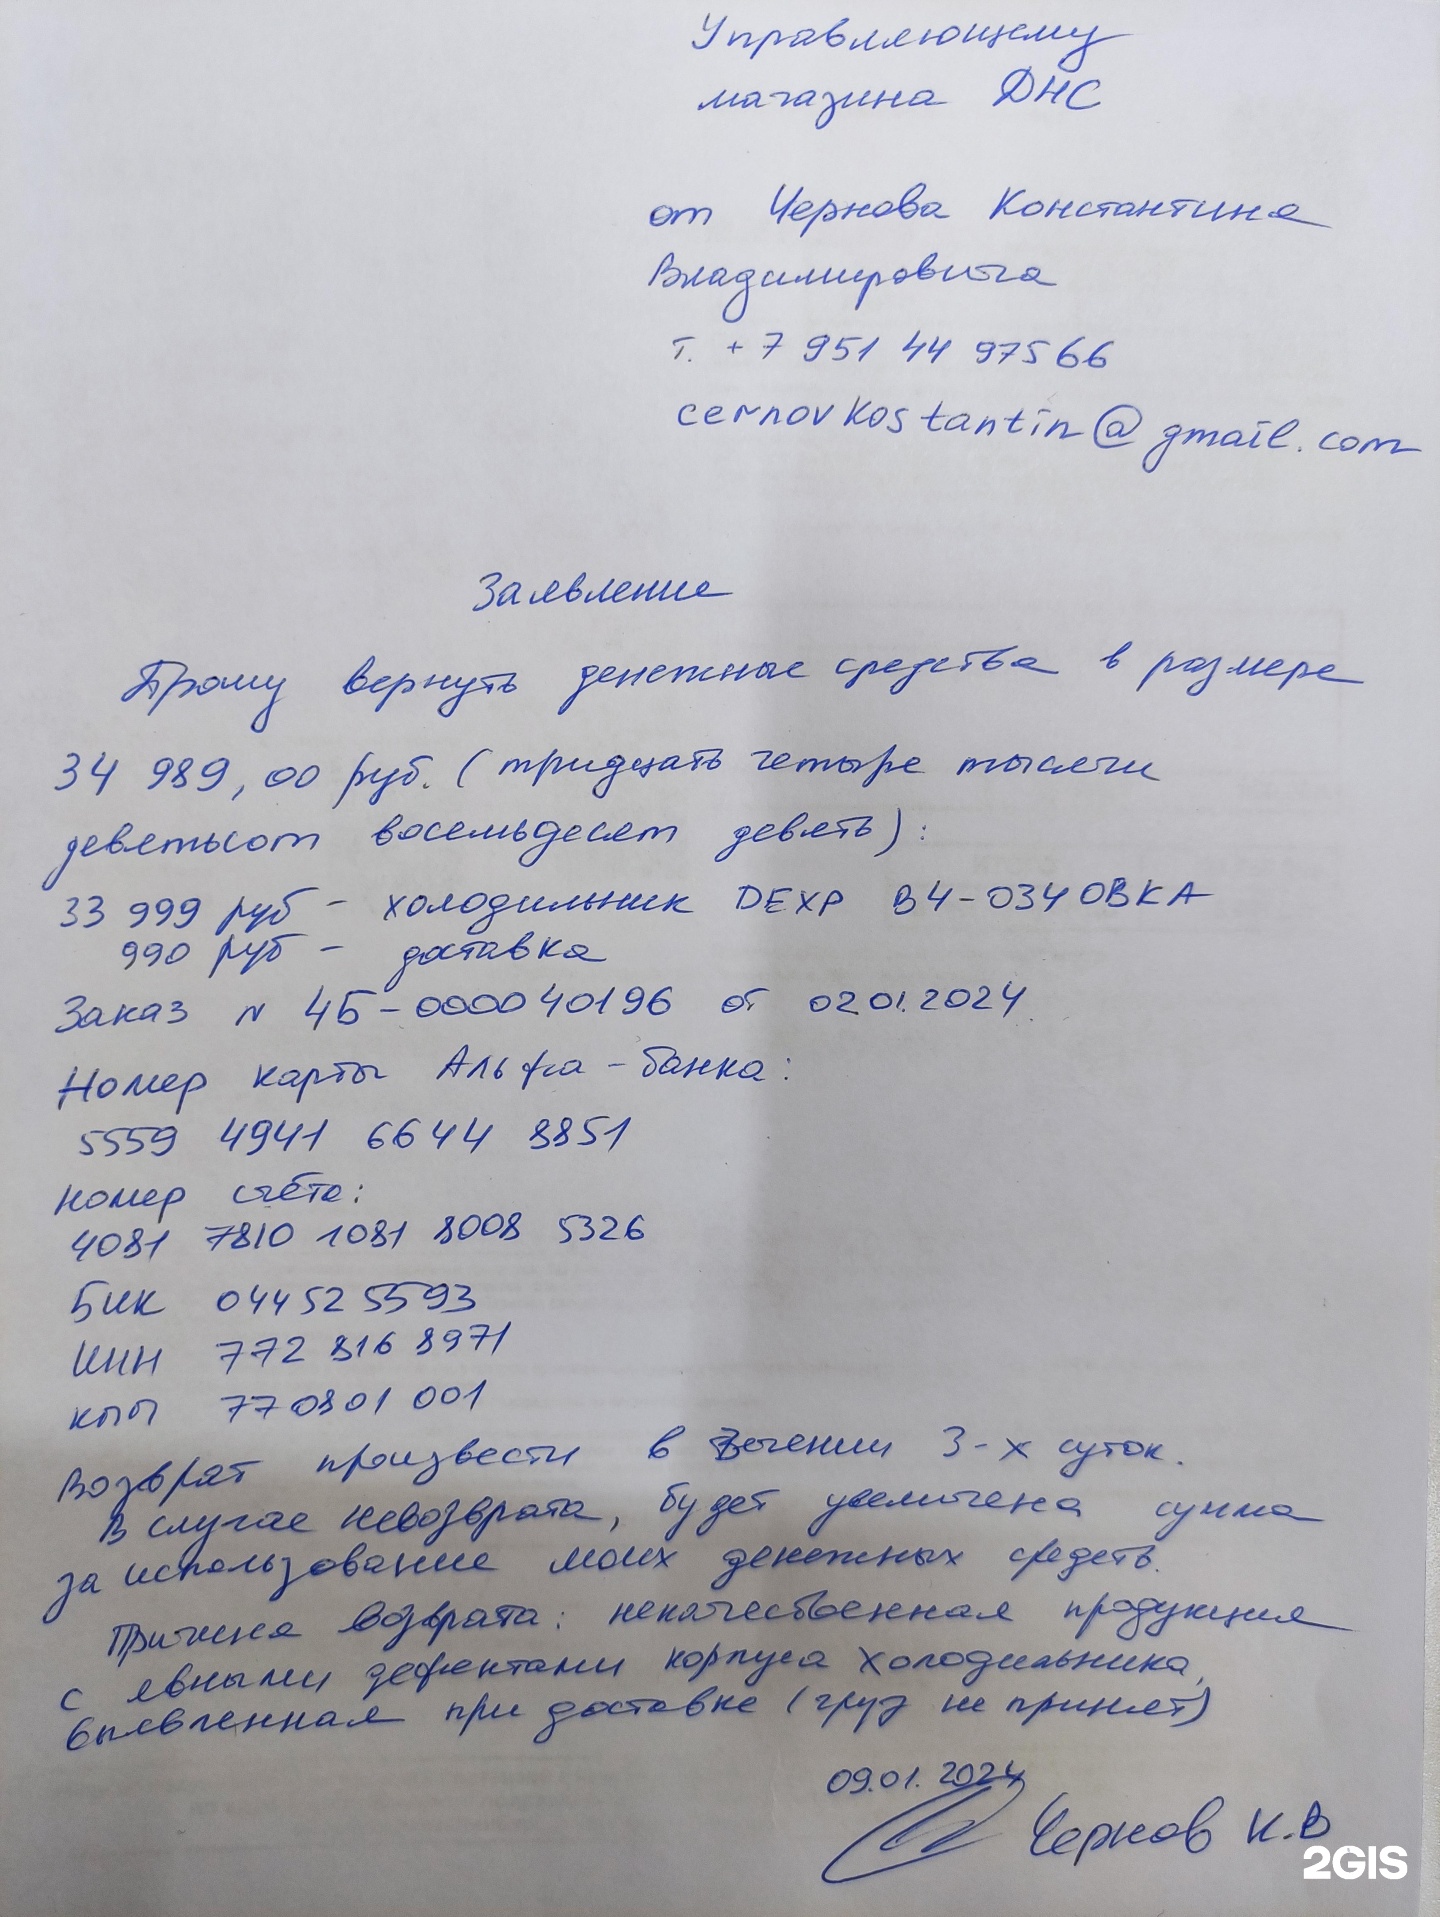 Управляющему
магазина ДНС
от Чернова Константина
Владимировича
т. +7 951 44 97566
cernovkostantin@gmail.com
Заявление
Прошу вернуть денежные средства в размере
34 989,00 руб. (тридцать четыре тысячи
девятьсот восемьдесят девять):
33 999 руб - холодильник DEXP B4-0340BKA
990 руб - доставка
Заказ N 4Б-000040196 от 02.01.2024
Номер карты Альфа-банка:
5559 4941 6644 8851
номер счёта:
4081 7810 1081 8008 5326
БИК 044525593
ИНН 772 816 8971
КПП 770801001
Возврат произвести в течении 3-х суток.
В случае невозврата, будет увеличена сумма
за использование моих денежных средств.
Причина возврата: некачественная продукция
с явными дефектами корпуса холодильника,
выявленная при доставке (груз не принят)
09.01.2024
Чернов К.В
2GIS